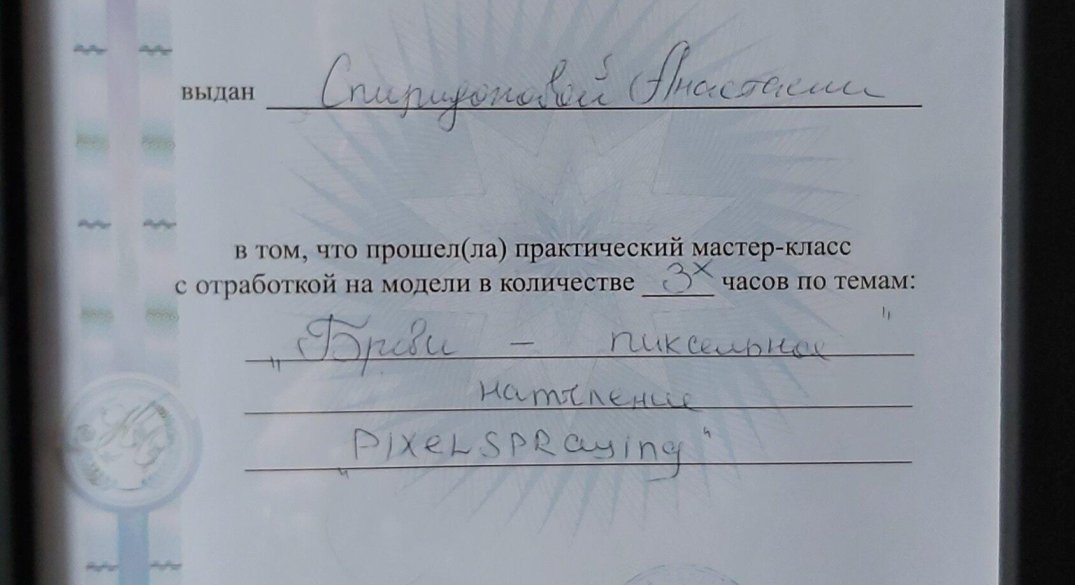 выдан Спиридоновой Анастасии
в том, что прошел(ла) практический мастер-класс
с отработкой на модели в количестве 3х часов по темам:
„Брови - пиксельное"
напыление
„PIXELSPRaying"